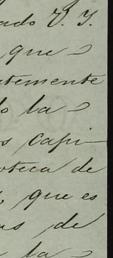 ado V. I.
que
temente
o la
s capi-
oteca de
, que es
as de
la